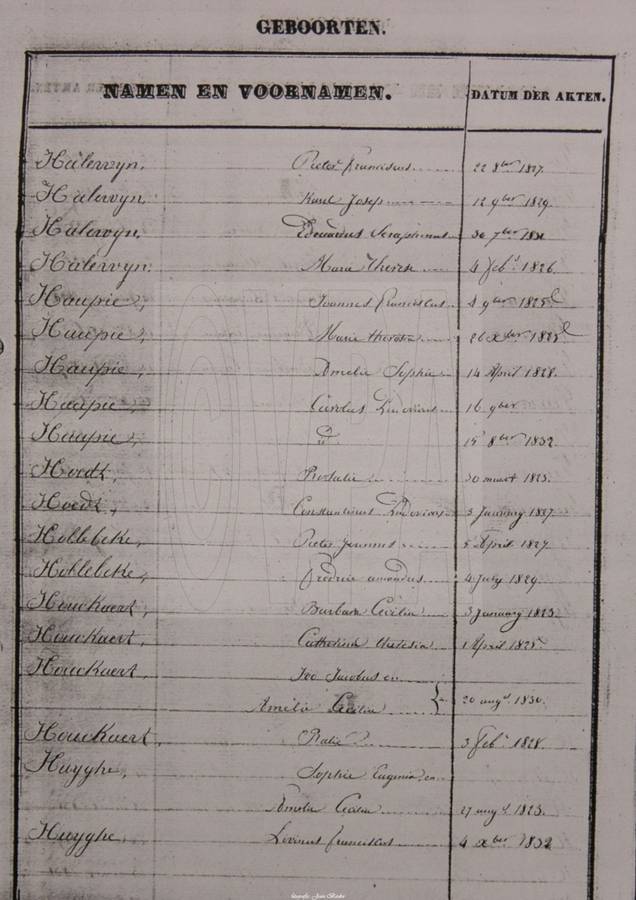 GEBOORTEN.
NAMEN EN VOORNAMEN. DATUM DER AKTEN.
Halewyn, Pieter Franciscus 22 8ber 1827.
Halewyn, Karel Josep 12 9ber 1829.
Halewyn, Edouardus Seraphinus 30 7ber
Halewyn. Maria Therese 4 feb. 1826.
Haupie, Joannes franciscus 4 9ber 1825
Haupie, Marie theresia 26 xber 1825
Haupie, Amelie Sophie 14 April 1828.
Haupie, Carolus Ludovicus 16 9ber
Haupie, id 15 8ber 1832.
Hoedt, Rosalie 30 maart 1823.
Hoedt, Constantinus Ludovicus 3 January 1827.
Hollebeke, Pieter Joannes 5 April 1827.
Hollebeke, amandus 4 july 1829.
Houckaert, Barbara Cecilia 3 january 1823.
Houckaert, Catholina theresia 1 April 1825.
Houckaert, Ivo Jacobus en
Amelia Cecilia 20 augt 1830.
Houckaert, 3 feb. 1828.
Huyghe, Sophie Eugenia en
Amelia Cecilia 27 augt 1823.
Huyghe, Livinus franciscus 4 xber 1832